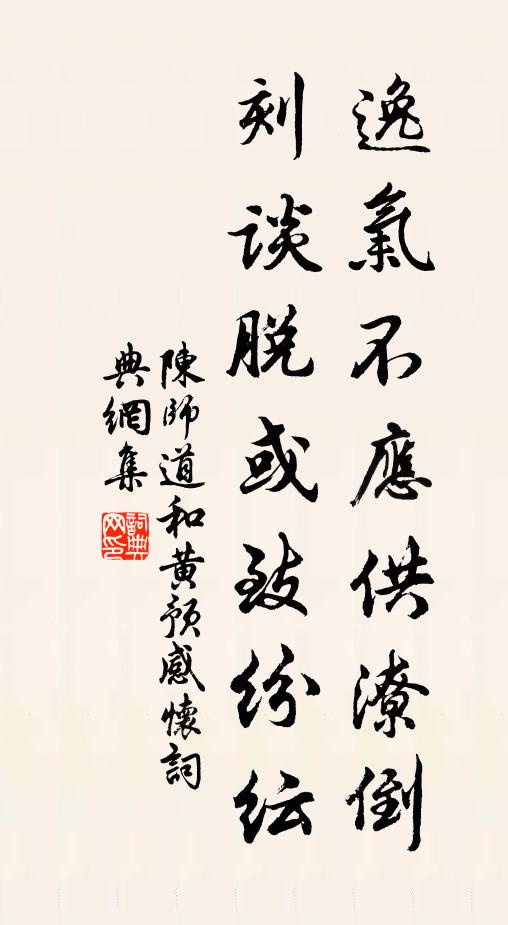 逸氣不應供潦倒
刻談脱或致紛紜
陳師道和黃預感懷詞
典網集
詞典網印